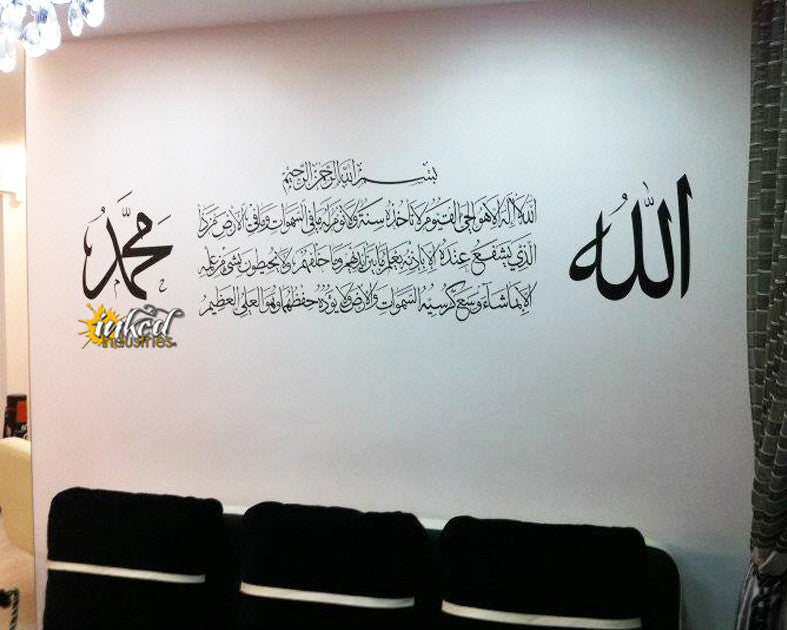 بسم الله الرحمن الرحيم
الله
الله لا إله إلا هو الحي القيوم لا تأخذه سنة ولا نوم له ما في السموات وما في الأرض من ذا
الذي يشفع عنده إلا بإذنه يعلم ما بين أيديهم وما خلفهم ولا يحيطون بشيء من علمه
إلا بما شاء وسع كرسيه السموات والأرض ولا يؤده حفظهما وهو العلي العظيم
محمد
inked
industries